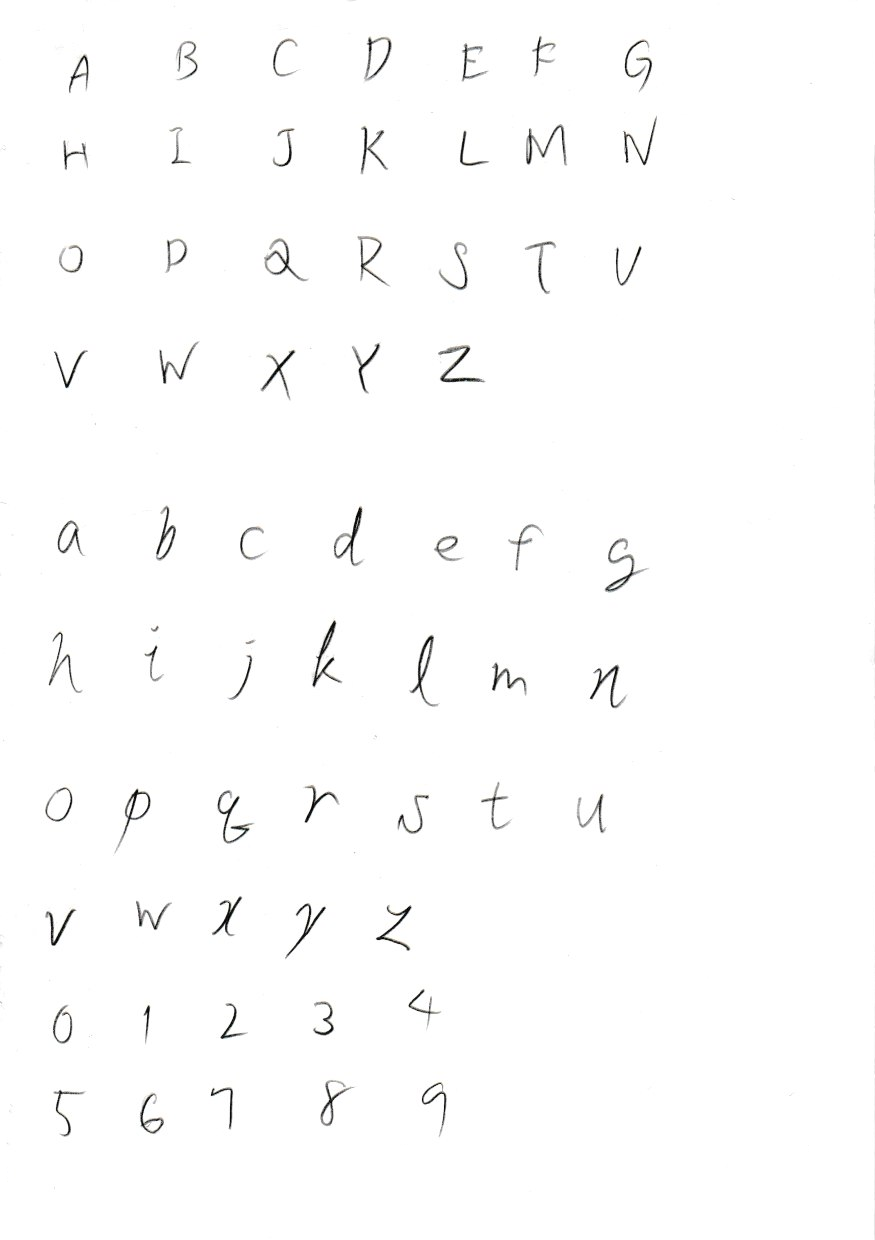 A B C D E F G
H I J K L M N
O P Q R S T U
V W X Y Z
a b c d e f g
h i j k l m n
o p q r s t u
v w x y z
0 1 2 3 4
5 6 7 8 9